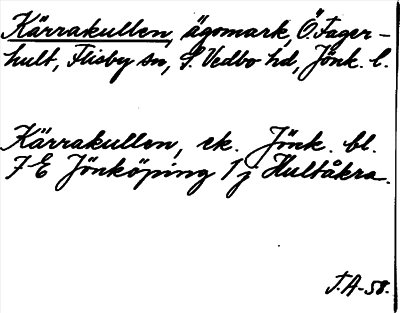 Kärrakullen, ägomark, Ö. Fager-
hult, Flisby sn, S. Vedbo hd, Jönk. l.
Kärrakullen, ek. Jönk. bl.
7 E Jönköping 1 j Hultåkra.
J.A-58.